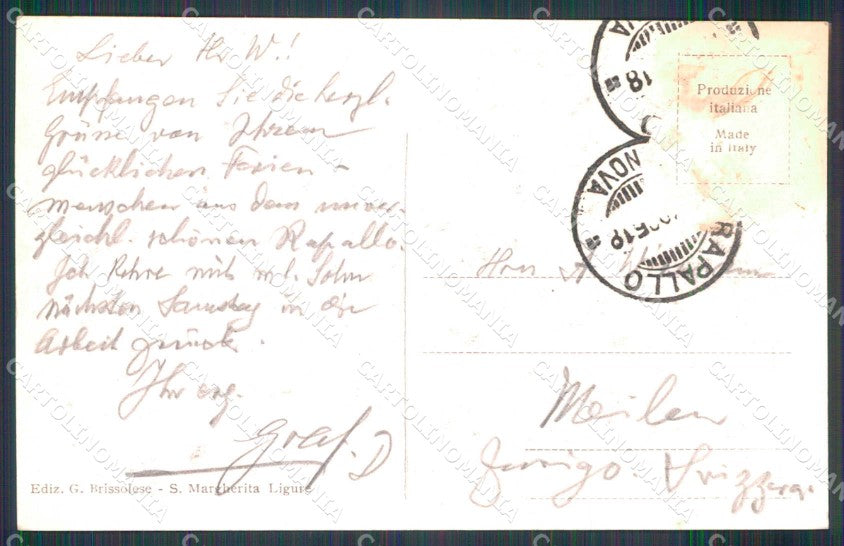 Lieber Hr W.!
Empfangen Sie die herzl.
Grüsse von Ihrem
glücklichen Ferien-
menschen aus dem unver-
gleichl. schönen Rapallo.
Ich kehre mit m. Sohn
nächsten Samstag in die
Arbeit zurück.
Ihr erg.
Graf. D
Ediz. G. Brissolese - S. Margherita Ligure
Produzione
italiana
Made
in Italy
NOVA
18
NOVA
RAPALLO
Herrn A
Meilen
Zurigo Svizzera.
CARTOLINOMANIA